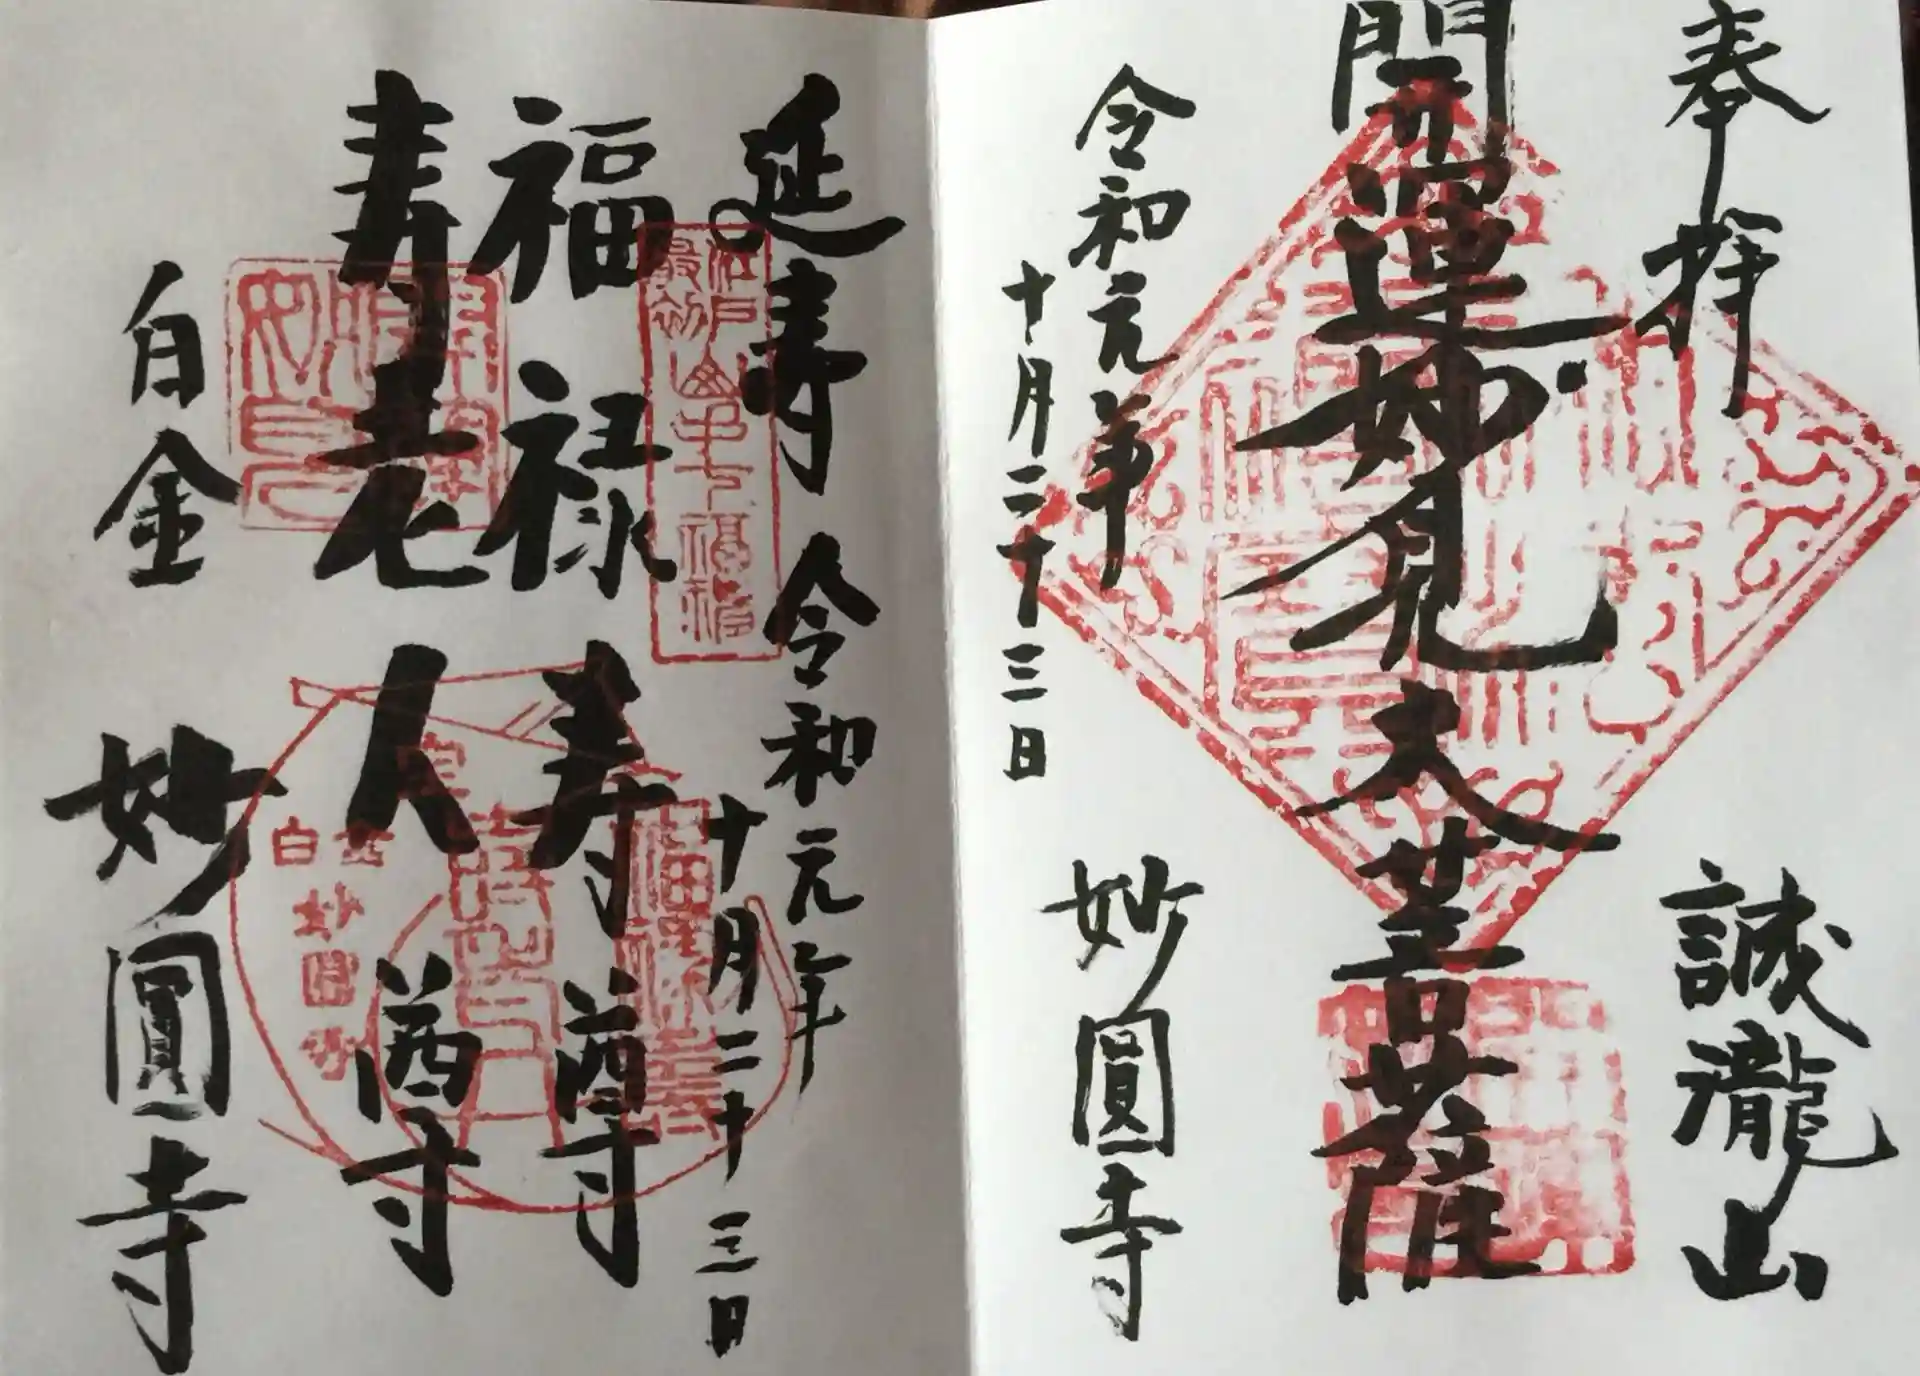 奉拝
誠瀧山
開運妙見大菩薩
令和元年
十月二十三日
妙圓寺
延寿
令和元年
十月二十三日
福禄寿尊
寿老人尊
白金
妙圓寺
江戸
最初
山手七福神
白金
妙圓寺